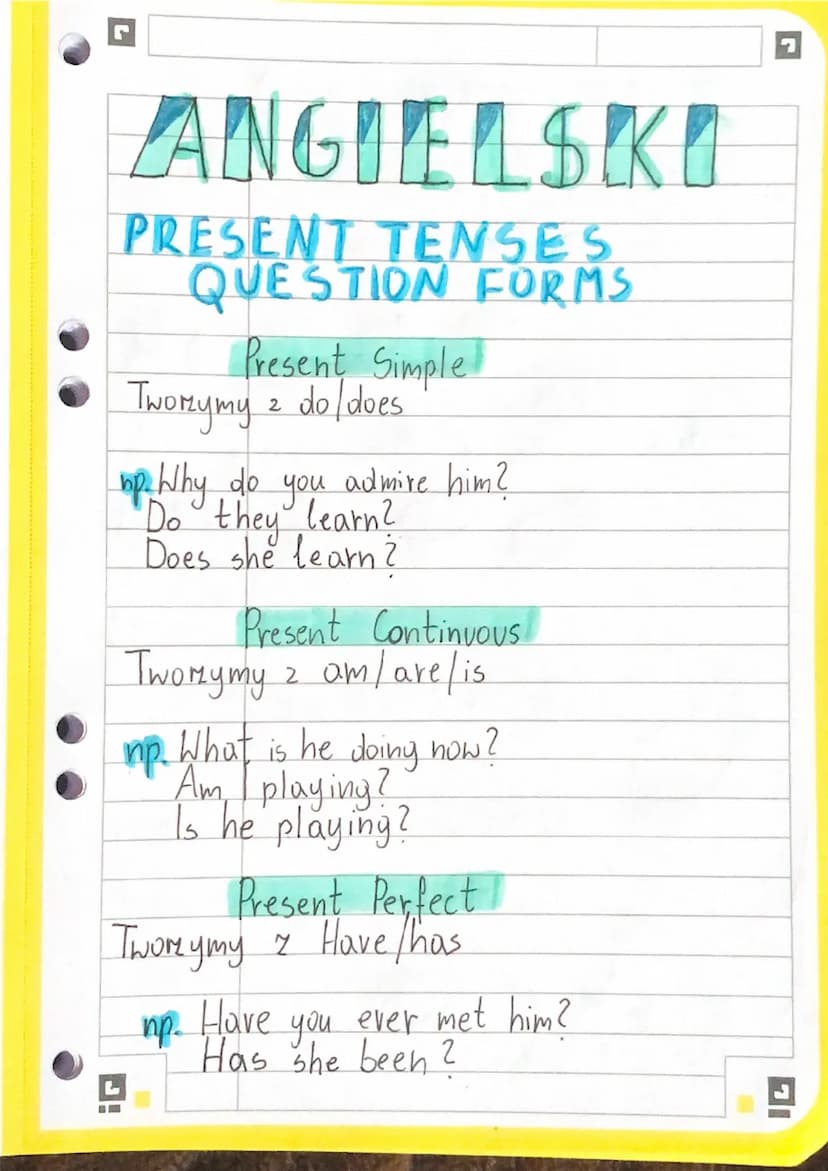 ANGIELSKI
PRESENT TENSES
QUESTION FORMS
Present Simple
Tworzymy z do/does
np. Why do you admire him?
Do they learn?
Does she learn?
Present Continuous
Tworzymy z am/are/is
np. What is he doing now?
Am I playing?
Is he playing?
Present Perfect
Tworzymy z Have/has
np. Have you ever met him?
Has she been?